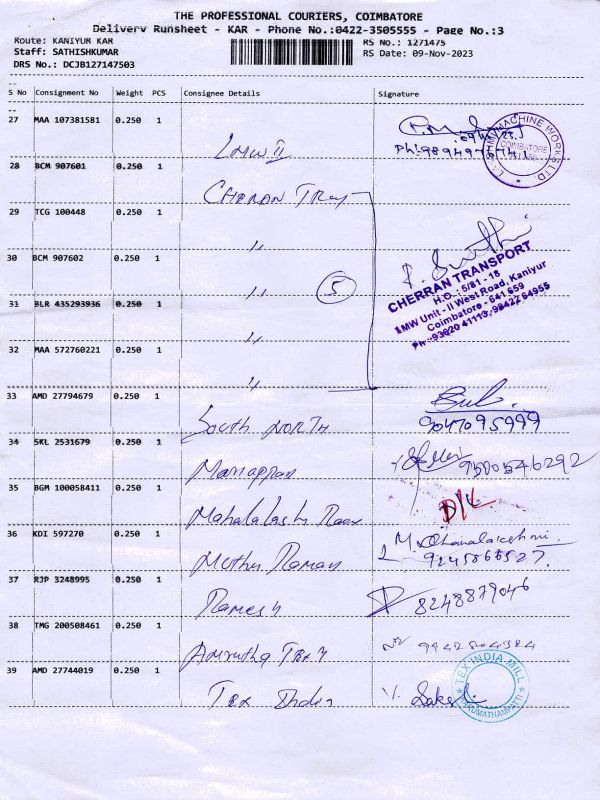 THE PROFESSIONAL COURIERS, COIMBATORE
Delivery Runsheet - KAR - Phone No.:0422-3505555 - Page No.:3
Route: KANIYUR KAR
RS No.: 1271475
Staff: SATHISHKUMAR
RS Date: 09-Nov-2023
DRS No.: DCJB127147503
S No Consignment No Weight PCS Consignee Details Signature
27 MAA 107381581 0.250 1
LMW II
09/11/23
Ph: 9894977741
LAKSHMI MACHINE WORKS LTD
COIMBATORE
28 BCM 907601 0.250 1
CHERAN TRay
29 TCG 100448 0.250 1
"
30 BCM 907602 0.250 1
"
5
CHERRAN TRANSPORT
H.O. : 5/81 - 18
LMW Unit - II West Road, Kaniyur
Coimbatore - 641 659
Ph : 93620 41113, 98422 64955
31 BLR 435293936 0.250 1
"
32 MAA 572760221 0.250 1
"
33 AMD 27794679 0.250 1
South NORTH
9047095999
34 SKL 2531679 0.250 1
Manappan
95005 46292
35 BGM 100058411 0.250 1
Mahalalash Raax
D/L
36 KDI 597270 0.250 1
Muthu Raman
M. Dhanalakshmi
9245866527
37 RJP 3248995 0.250 1
Ramesh
8248879046
38 TMG 200508461 0.250 1
Amrutha TEX
9442804324
39 AMD 27744019 0.250 1
Tex India
V. Sakthi
TEX INDIA MILL
KARUMATHAMPATTI